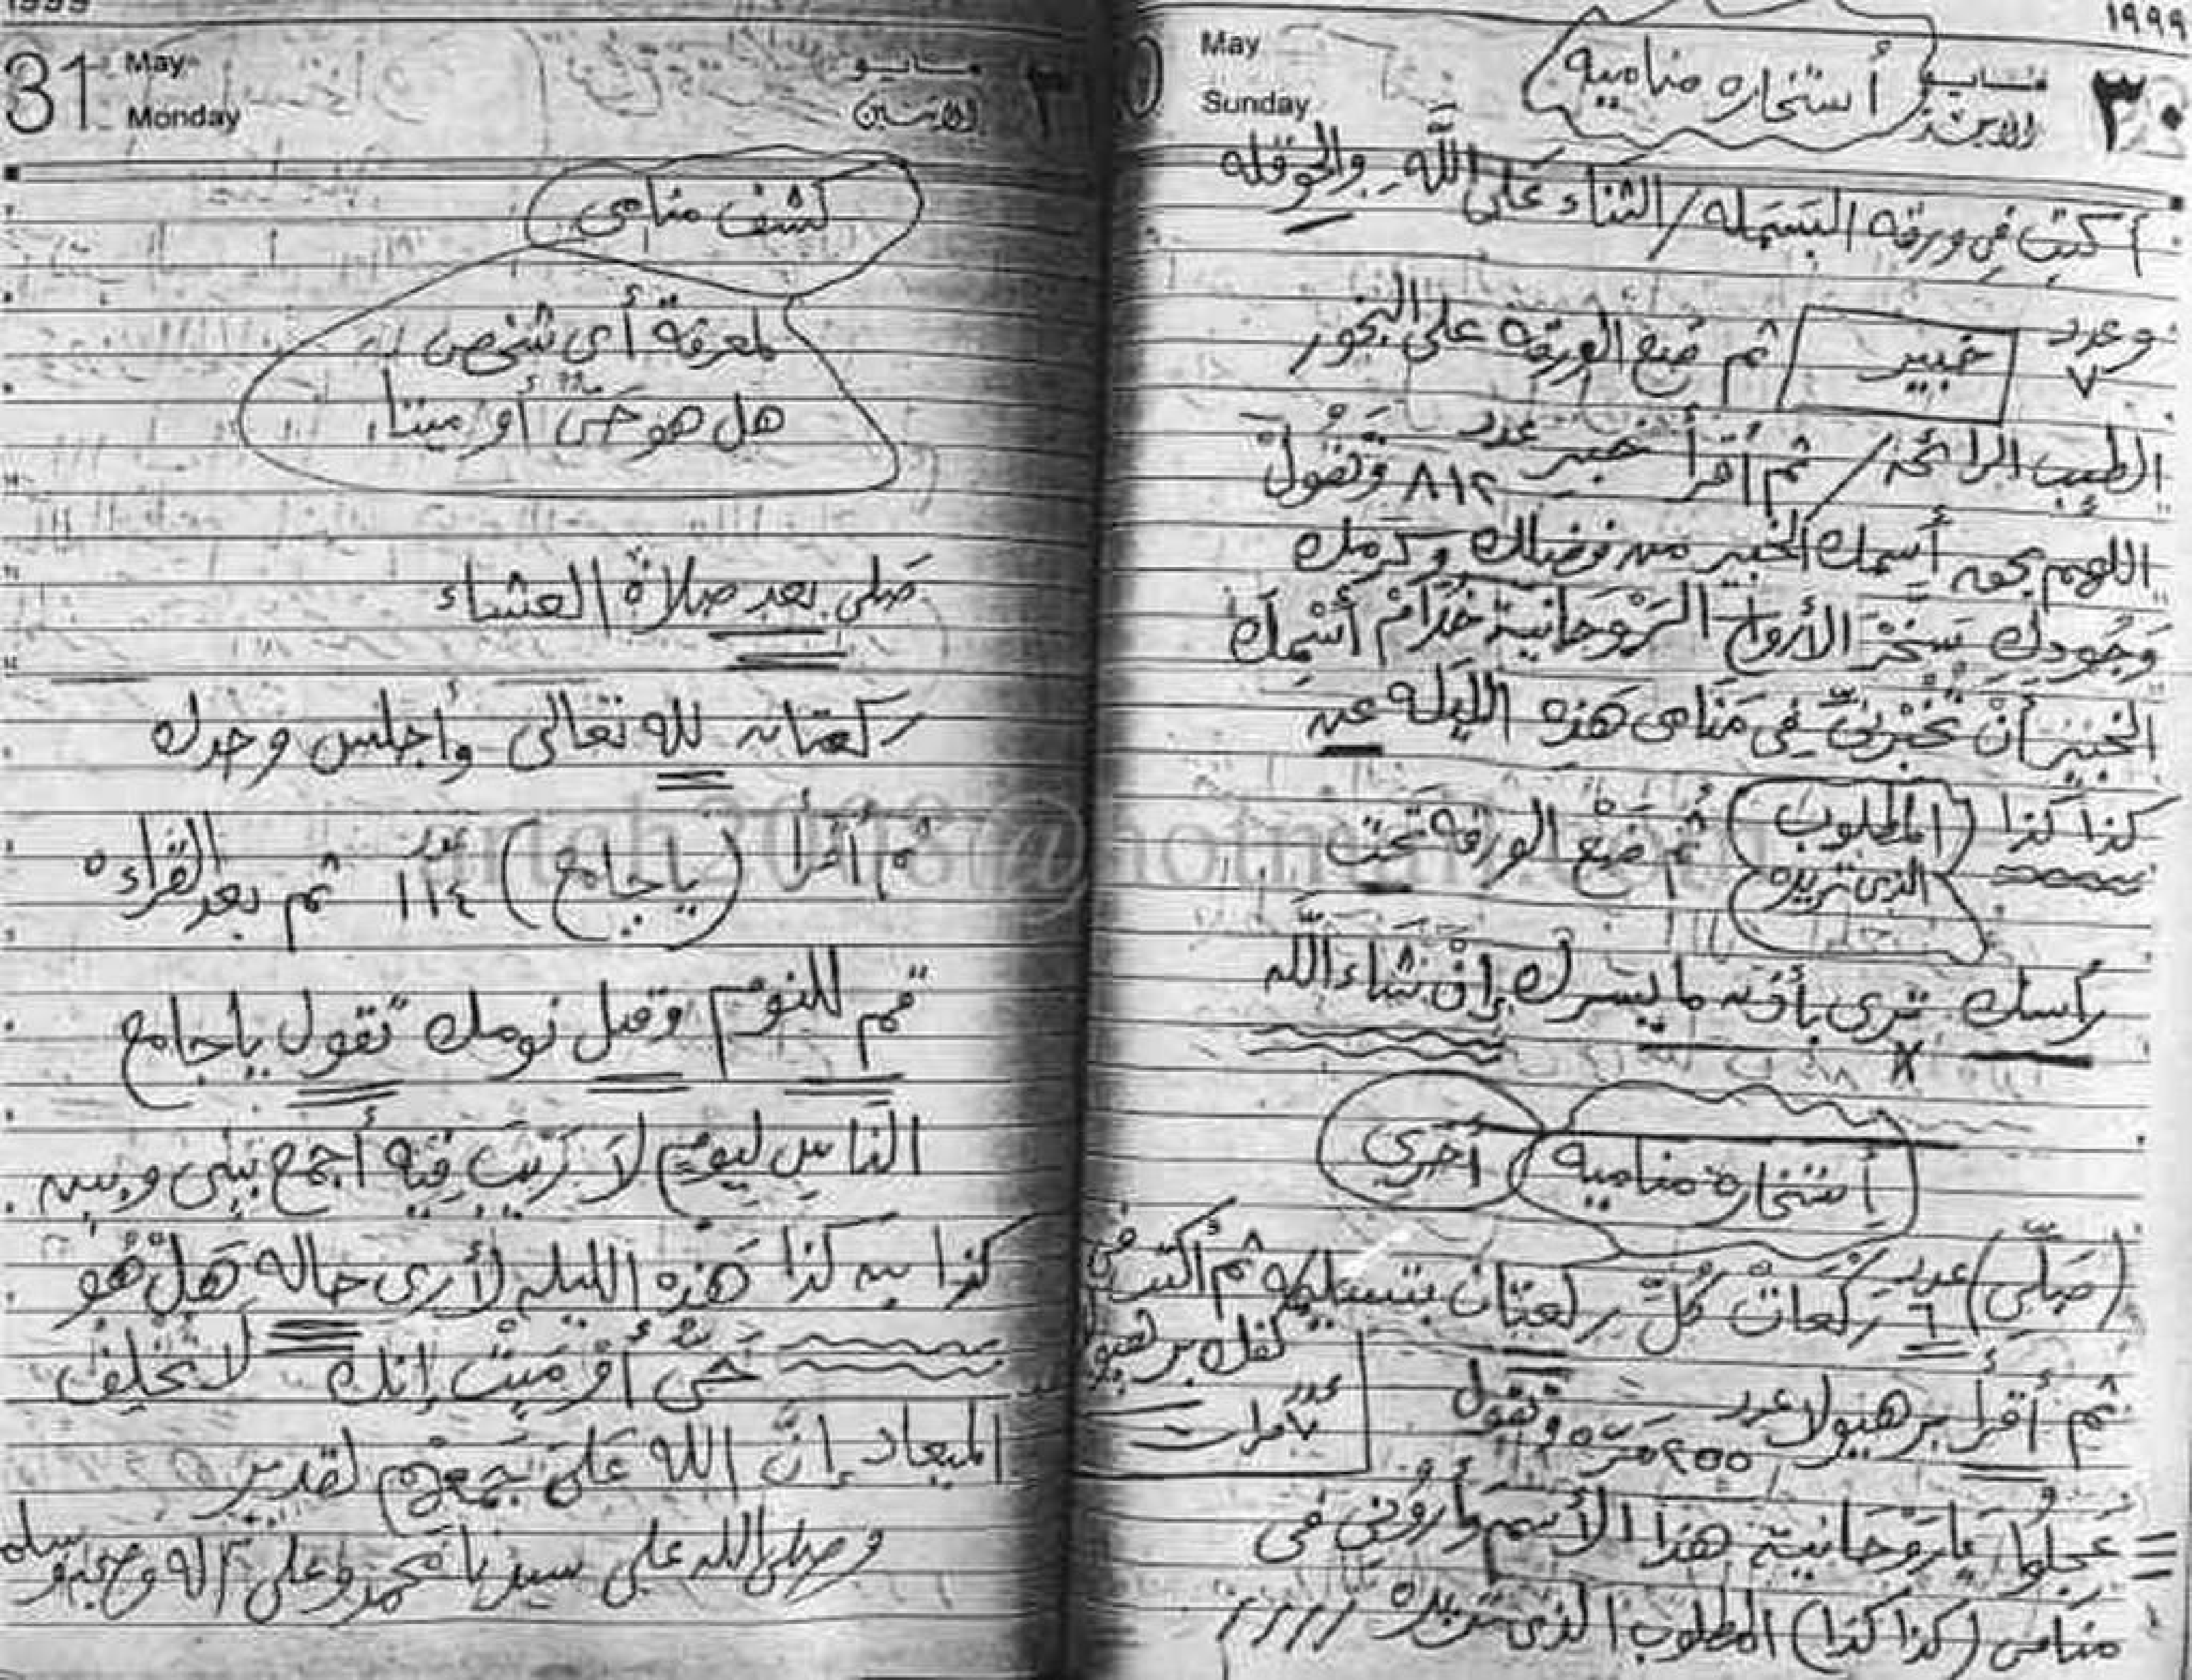 ١٩٩٩
٣٠ مايو May
الأحد Sunday
أستخاره مناميه
أكتب في ورقه البسمله / الثناء على الله والحوقله
وعدد ٧ خبير ثم ضع الورقه على البخور
الطيب الرائحة / ثم أقرأ خبير عدد ٨١٢ وتقول
اللهم بحق أسمك الخبير من فضلك وكرمك
وجودك سخر الأرواح الروحانية خدام أسمك
الخبير أن تخبرني في منامي هذه الليله عن
كذا كذا (المطلوب الذي تريده) ثم ضع الورقة تحت
رأسك ترى بأذنه ما يسرك إن شاء الله
أستخاره مناميه أخرى
(صلي) عدد ٦ ركعات كل ركعتان بتسليمه ثم أكتب في
كفك برهيولا
عدد ٧ مرات
ثم أقرأ برهيولا عدد
٢٥٥ مرة وتقول
عجلوا يا روحانية هذا الأسم وأروني في
منامي (كذا كذا) المطلوب الذي تريده
1999
31 May
Monday مايو
الاثنين
كشف منامي
لمعرفة أي شخص
هل هو حي أو ميتا
صلي بعد صلاة العشاء
ركعتان لله تعالى وأجلس وحدك
ثم أقرأ (يا جامع) عدد ١١٤ ثم بعد القراءه
قم للنوم وقبل نومك تقول يا جامع
الناس ليوم لا ريب فيه أجمع بيني وبين
كذا بن كذا هذه الليله لأرى حاله هل هو
حي أو ميت إنك لا تخلف
الميعاد إن الله على جمعهم لقدير
وصلى الله على سيدنا محمد وعلى آله وصحبه وسلم